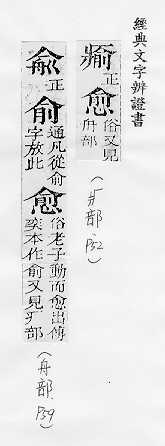 經典文字辨證書
瘉正愈俗又見
舟部
(疒部、P52)
俞正俞通凡從俞
字放此愈俗老子動而愈出傳
奕本作俞又見疒部
(舟部、P39)